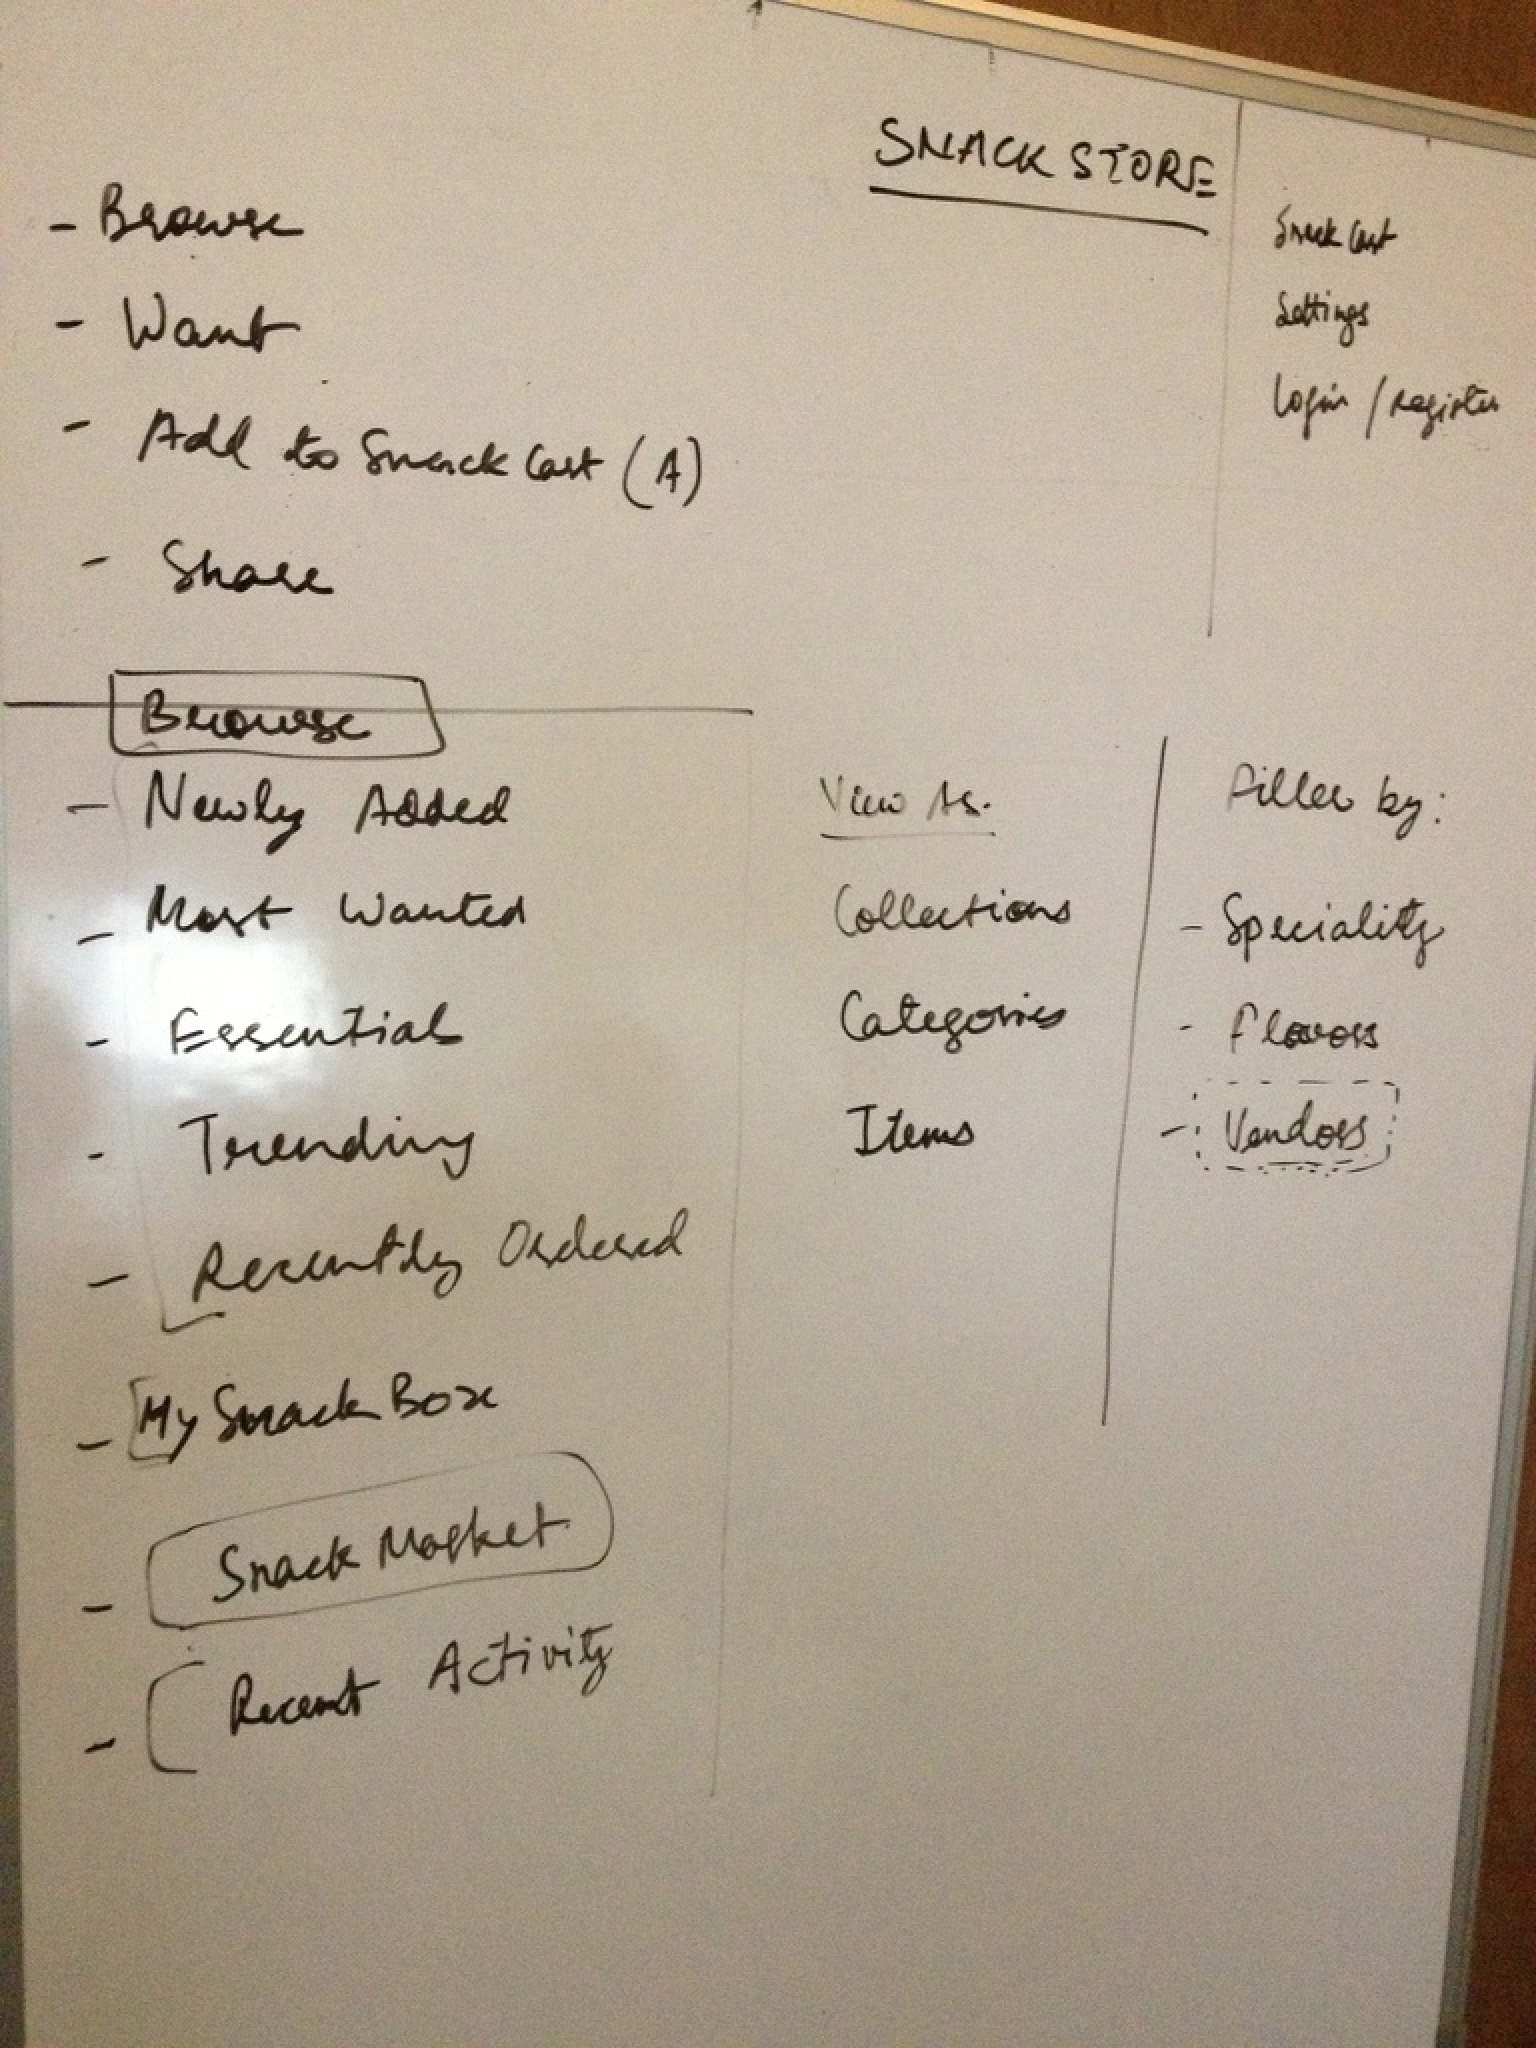 SNACK STORE
- Browse
- Want
- Add to Snack Cart (A)
- Share
Snack Cart
Settings
Login / register
Browse
- Newly Added
- Most Wanted
- Essential
- Trending
- Recently Ordered
- My Snack Box
- Snack Market
- Recent Activity
View As.
Collections
Categories
Items
Filter by:
- Speciality
- Flavors
- Vendors